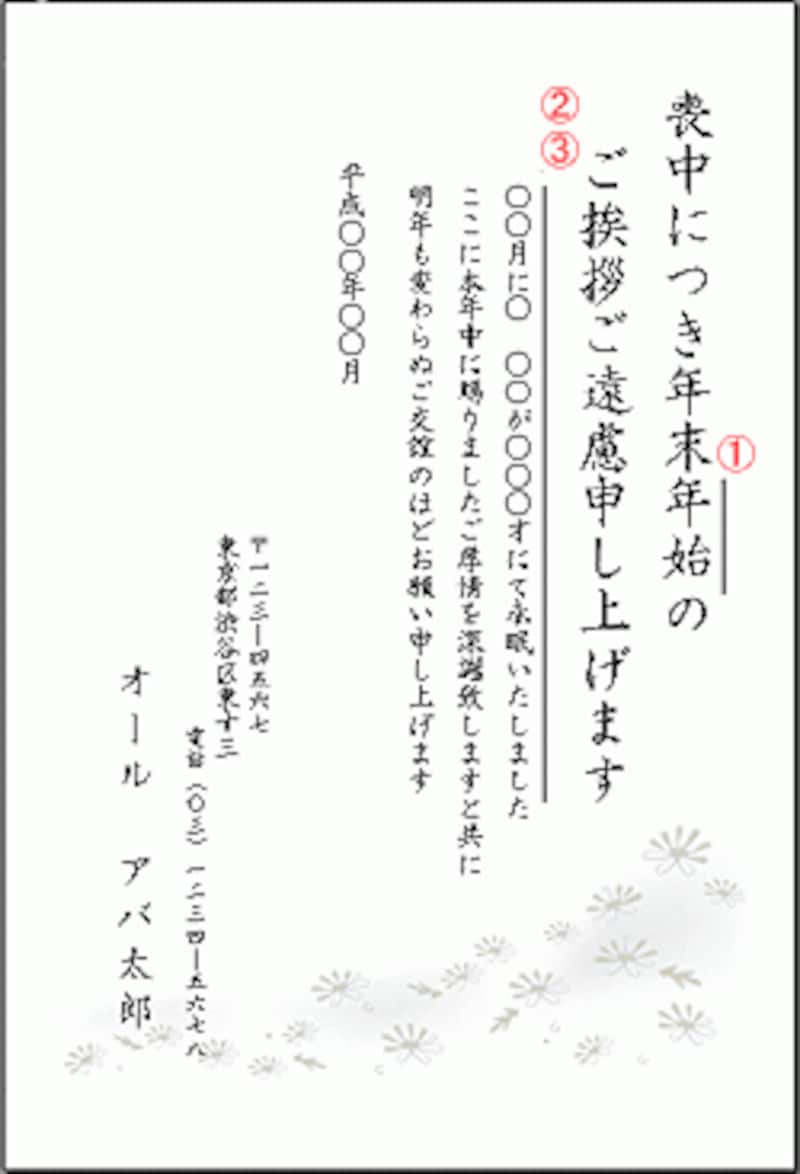 喪中につき年末年始の
①
ご挨拶ご遠慮申し上げます
②
③
〇〇月に〇　〇〇が〇〇〇才にて永眠いたしました
ここに本年中に賜りましたご厚情を深謝致しますと共に
明年も変わらぬご交誼のほどお願い申し上げます
平成〇〇年〇〇月
〒一二三ー四五六七
東京都渋谷区東十三
電話（〇三）一二三四ー五六七八
オール　アバ太郎